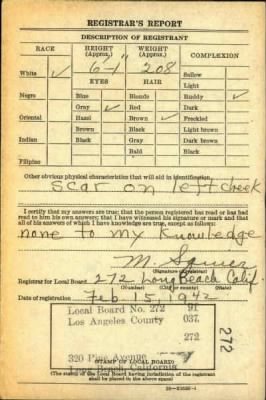 REGISTRAR'S REPORT
DESCRIPTION OF REGISTRANT
RACE HEIGHT (Approx.) WEIGHT (Approx.) COMPLEXION
6-1 208
White ✓ EYES HAIR Sallow
Light
Negro Blue Blonde Ruddy ✓
Gray ✓ Red Dark
Oriental Hazel Brown ✓ Freckled
Brown Black Light brown
Indian Black Gray Dark brown
Bald Black
Filipino
Other obvious physical characteristics that will aid in identification
scar on left cheek
I certify that my answers are true; that the person registered has read or has had
read to him his own answers; that I have witnessed his signature or mark and that
all of his answers of which I have knowledge are true, except as follows:
none to my knowledge
M.
(Signature of registrar)
Registrar for Local Board 272 Long Beach Calif
(Number) (City or county) (State)
Date of registration Feb. 15, 1942
Local Board No. 272 91
Los Angeles County 037
272
272
320 Pine Avenue
Long Beach, California
(STAMP OF LOCAL BOARD)
(The stamp of the Local Board having jurisdiction of the registrant
shall be placed in the above space)